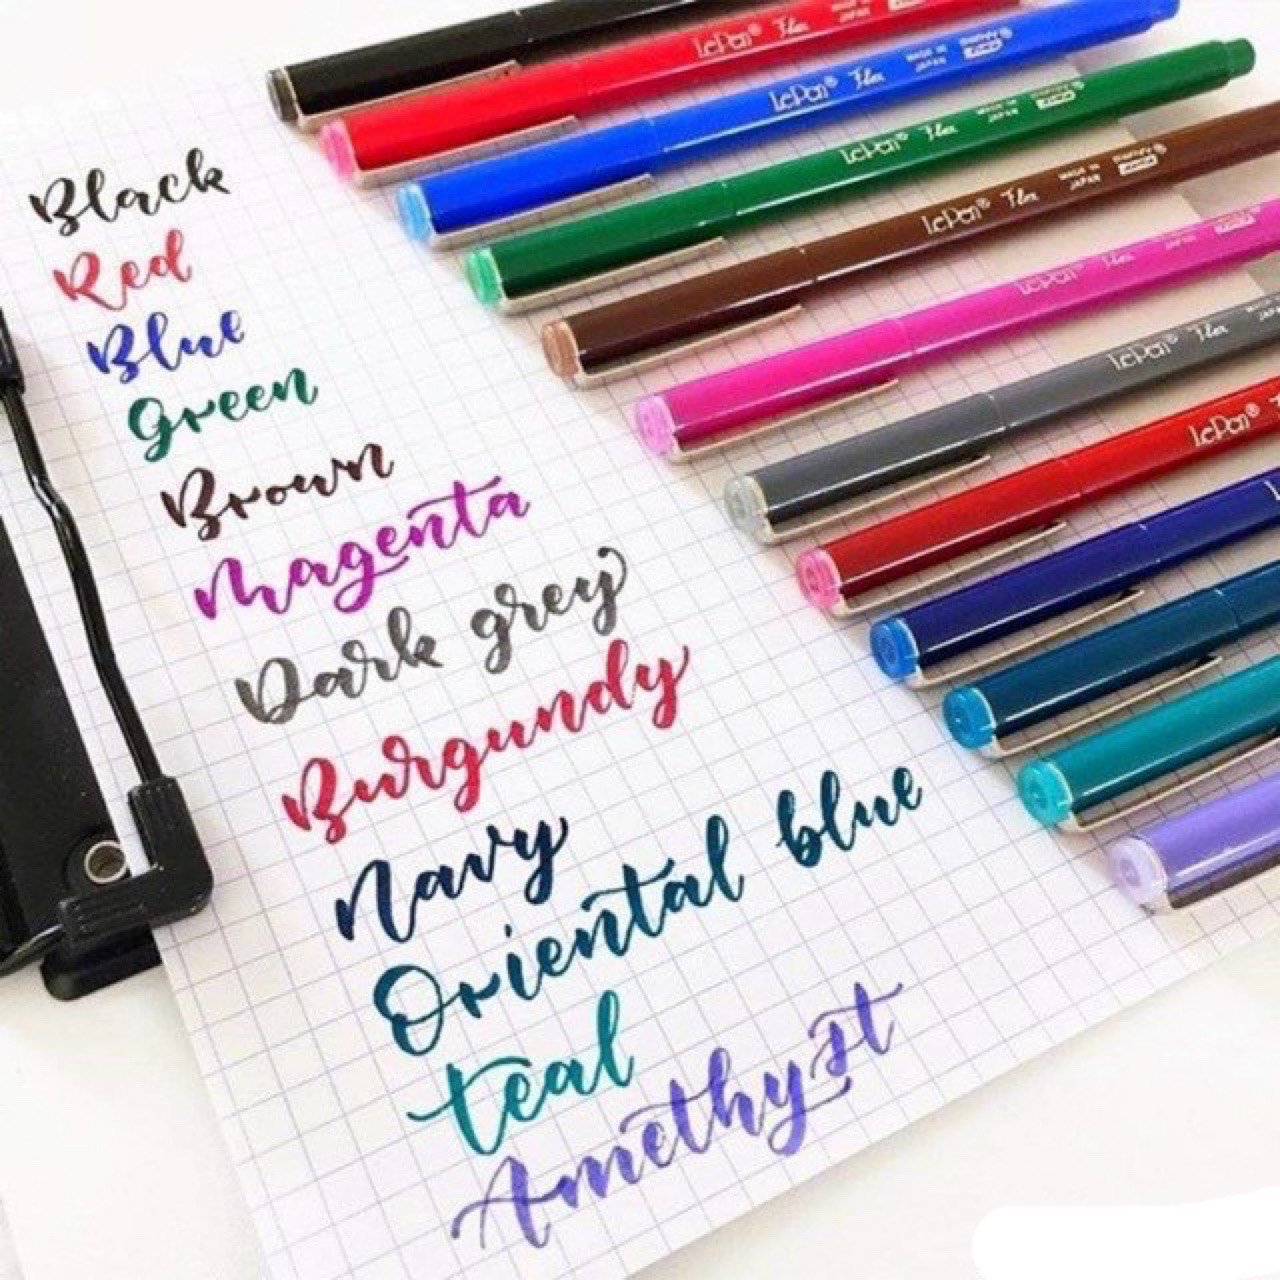 Black
Red
Blue
Green
Brown
Magenta
Dark grey
Burgundy
Navy
Oriental blue
teal
Amethyst
LePen® Flex
LePen® Flex MADE IN JAPAN
LePen® Flex
LePen® Flex MADE IN JAPAN
LePen® Flex
LePen® Flex
LePen®